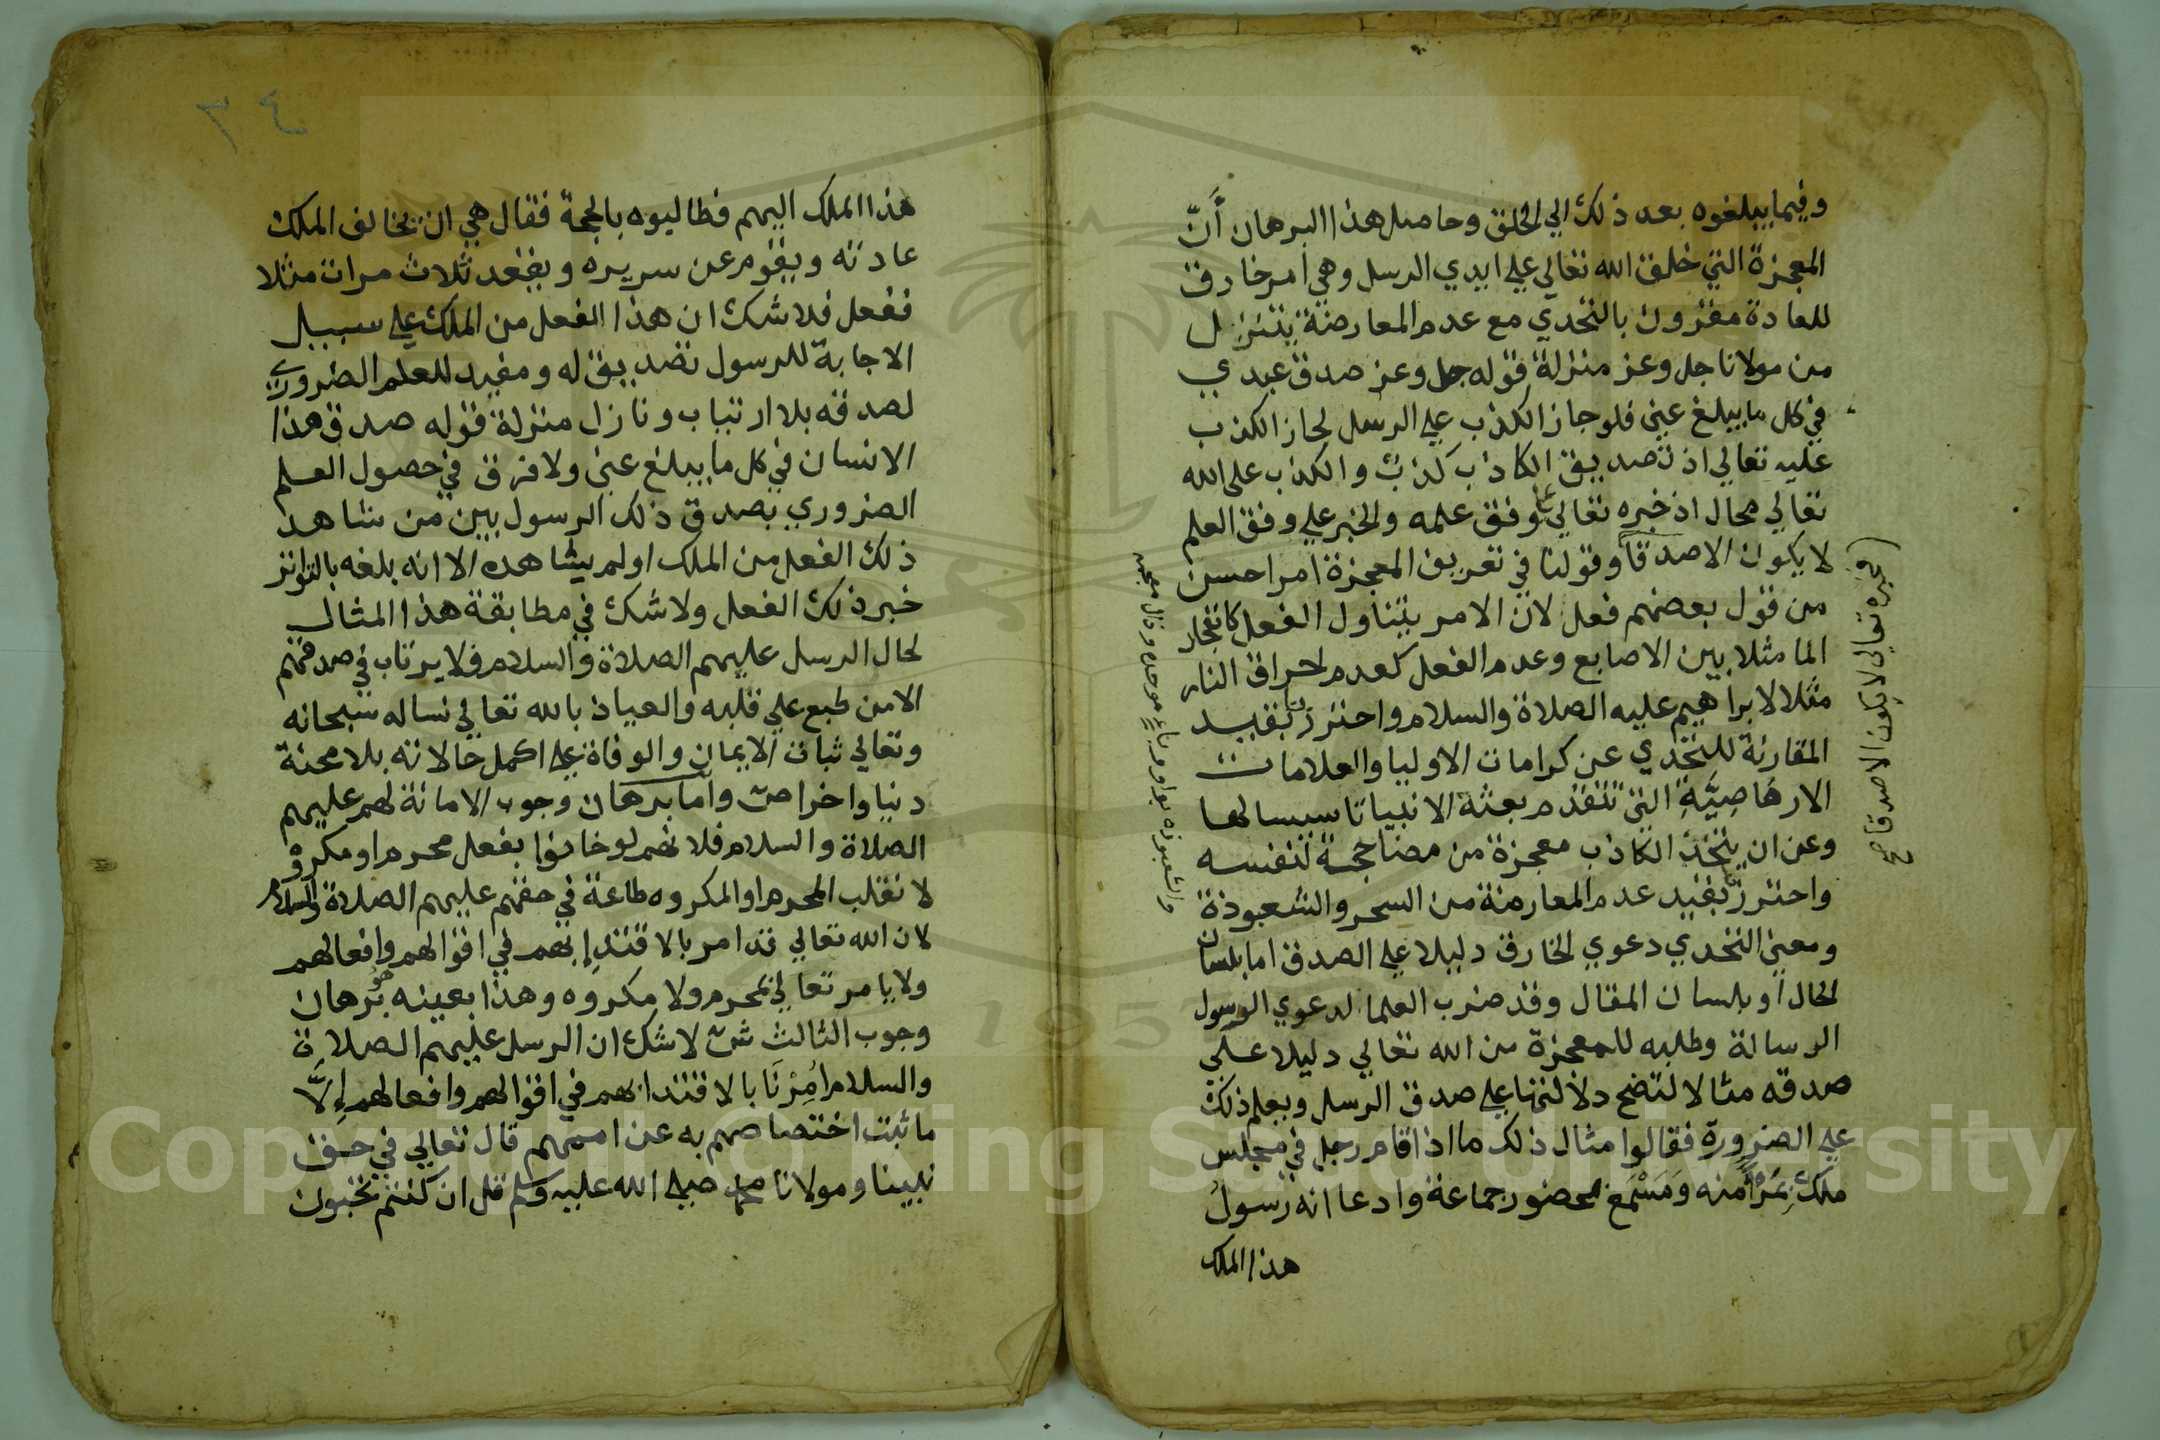 وفيما يبلغوه بعد ذلك الي الخلق وحاصل هذا البرهان أنّ
المعجزة التي خلق الله تعالي علي ايدي الرسل وهي امر خارق
للعادة مقرون بالتحدي مع عدم المعارضة يتنزل
من مولانا جل وعز منزلة قوله جل وعز صدق عبدي
في كل ما يبلغ عني فلو جاز الكذب علي الرسل لجاز الكذب
عليه تعالي اذ تصديق الكاذب كذب والكذب علي الله
تعالي محال اذ خبره تعالي علي وفق علمه والخبر علي وفق العلم
لا يكون الا صدقا وقولنا في تعريف المعجزة امرا حسن
من قول بعضهم فعل لان الامر يتناول الفعل كانفجار
الما مثلا بين الاصابع وعدم الفعل كعدم احراق النار
مثلا لابراهيم عليه الصلاة والسلام واحترز بقيد
المقارنة للتحدي عن كرامات الاوليا والعلامات
الارهاصِيَّةِ التي تتقدم بعثة الانبيا تاسيسا لها
وعن ان يتخذ الكاذب معجزة من مضا حجة لنفسه
واحترز بقيد عدم المعارضة من السحر والشعبوذة
ومعني التحدي دعوي الخارق دليلا علي الصدق اما بلسان
الحال او بلسان المقال وقد ضرب العلما لدعوي الرسول
الرسالة وطلبه للمعجزة من الله تعالي دليلا علي
صدقه مثالا لتضح دلالتها علي صدق الرسل ويعلم ذلك
علي الضرورة فقالوا مثال ذلك ما اذا قام رجل في مجلس
ملك بمرأ منه ومَسْمَع بحضور جماعة وادعا انه رسول
هذا الملك
فخبره تعالي لا يكون الا صدقا صح
هذا الملك اليهم فطالبوه بالحجة فقال هي ان يخالف الملك
عادته ويقوم عن سريره ويقعد ثلاث مرات مثلا
ففعل فلا شك ان هذا الفعل من الملك علي سبيل
الاجابة للرسول تصديق له ومفيد للعلم الضروري
لصدقه بلا ارتياب ونازل منزلة قوله صدق هذا
الانسان في كل ما يبلغ عني ولا فرق في حصول العلم
الضروري بصدق ذلك الرسول بين من شاهد
ذلك الفعل من الملك اولم يشاهده الا انه بلغه بالتواتر
خبر ذلك الفعل ولا شك في مطابقة هذا المثال
لحال الرسل عليهم الصلاة والسلام فلا يرتاب في صدقهم
الا من طبع علي قلبه والعياذ بالله تعالي نساله سبحانه
وتعالي ثبات الايمان والوفاة علي اكمل حالاته بلا محنة
دنيا واخرا ص واما برهان وجوب الامانة لهم عليهم
الصلاة والسلام فلانهم لو خانوا بفعل محرم او مكروه
لا نقلب المحرم او المكروه طاعة في حقهم عليهم الصلاة والسلام
لان الله تعالي قد امر بالاقتدا بهم في اقوالهم وافعالهم
ولا يامر تعالي بمحرم ولا مكروه وهذا بعينه هو برهان
وجوب الثالث ش لا شك ان الرسل عليهم الصلاة
والسلام اُمِرْنَا بالاقتدا بهم في اقوالهم وافعالهم إلاَّ
ما ثبت اختصاصهم به عن اممهم قال تعالي في حق
نبينا ومولانا محمد صلي الله عليه وسلم قل ان كنتم تحبون